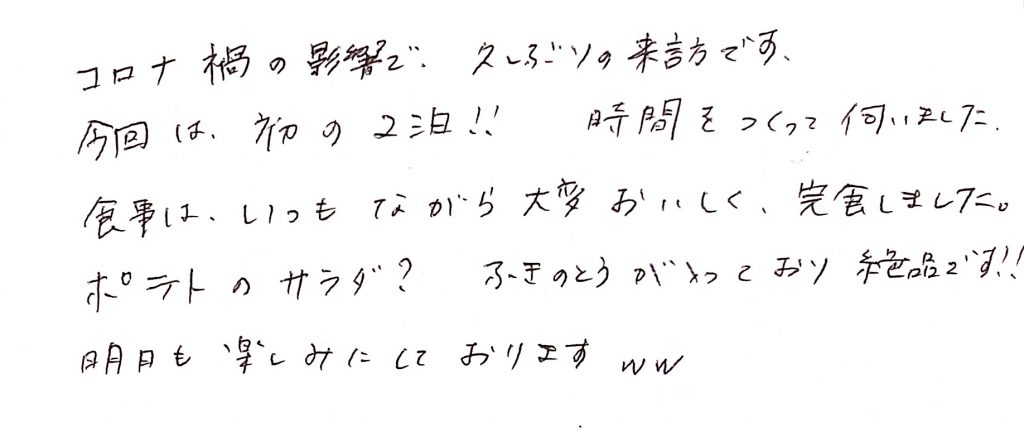 コロナ禍の影響で、久しぶりの来訪です、
今回は、初の2泊!! 時間をつくって伺いました、
食事は、いつもながら大変おいしく、完食しました。
ポテトのサラダ? ふきのとうが入っており絶品です!!
明日も楽しみにしております ww